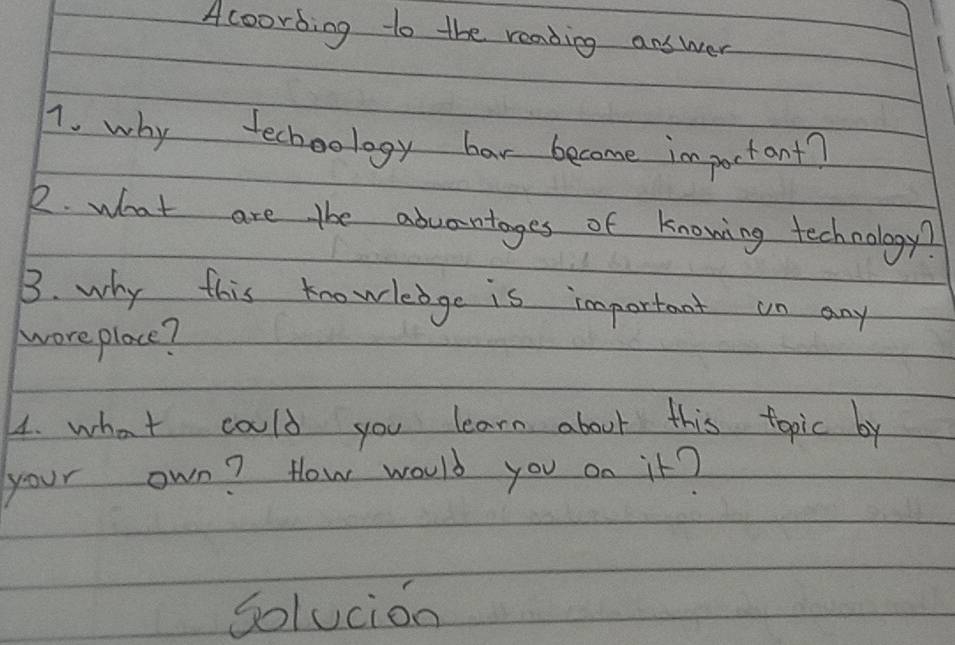 Acoording to the reading answer
1. why technology har become important?
2. what are the aduantages of knowing technology?
3. why this knowledge is important un any
woreplace?
1. what could you learn about this topic by
your own? How would you on it?
Solución